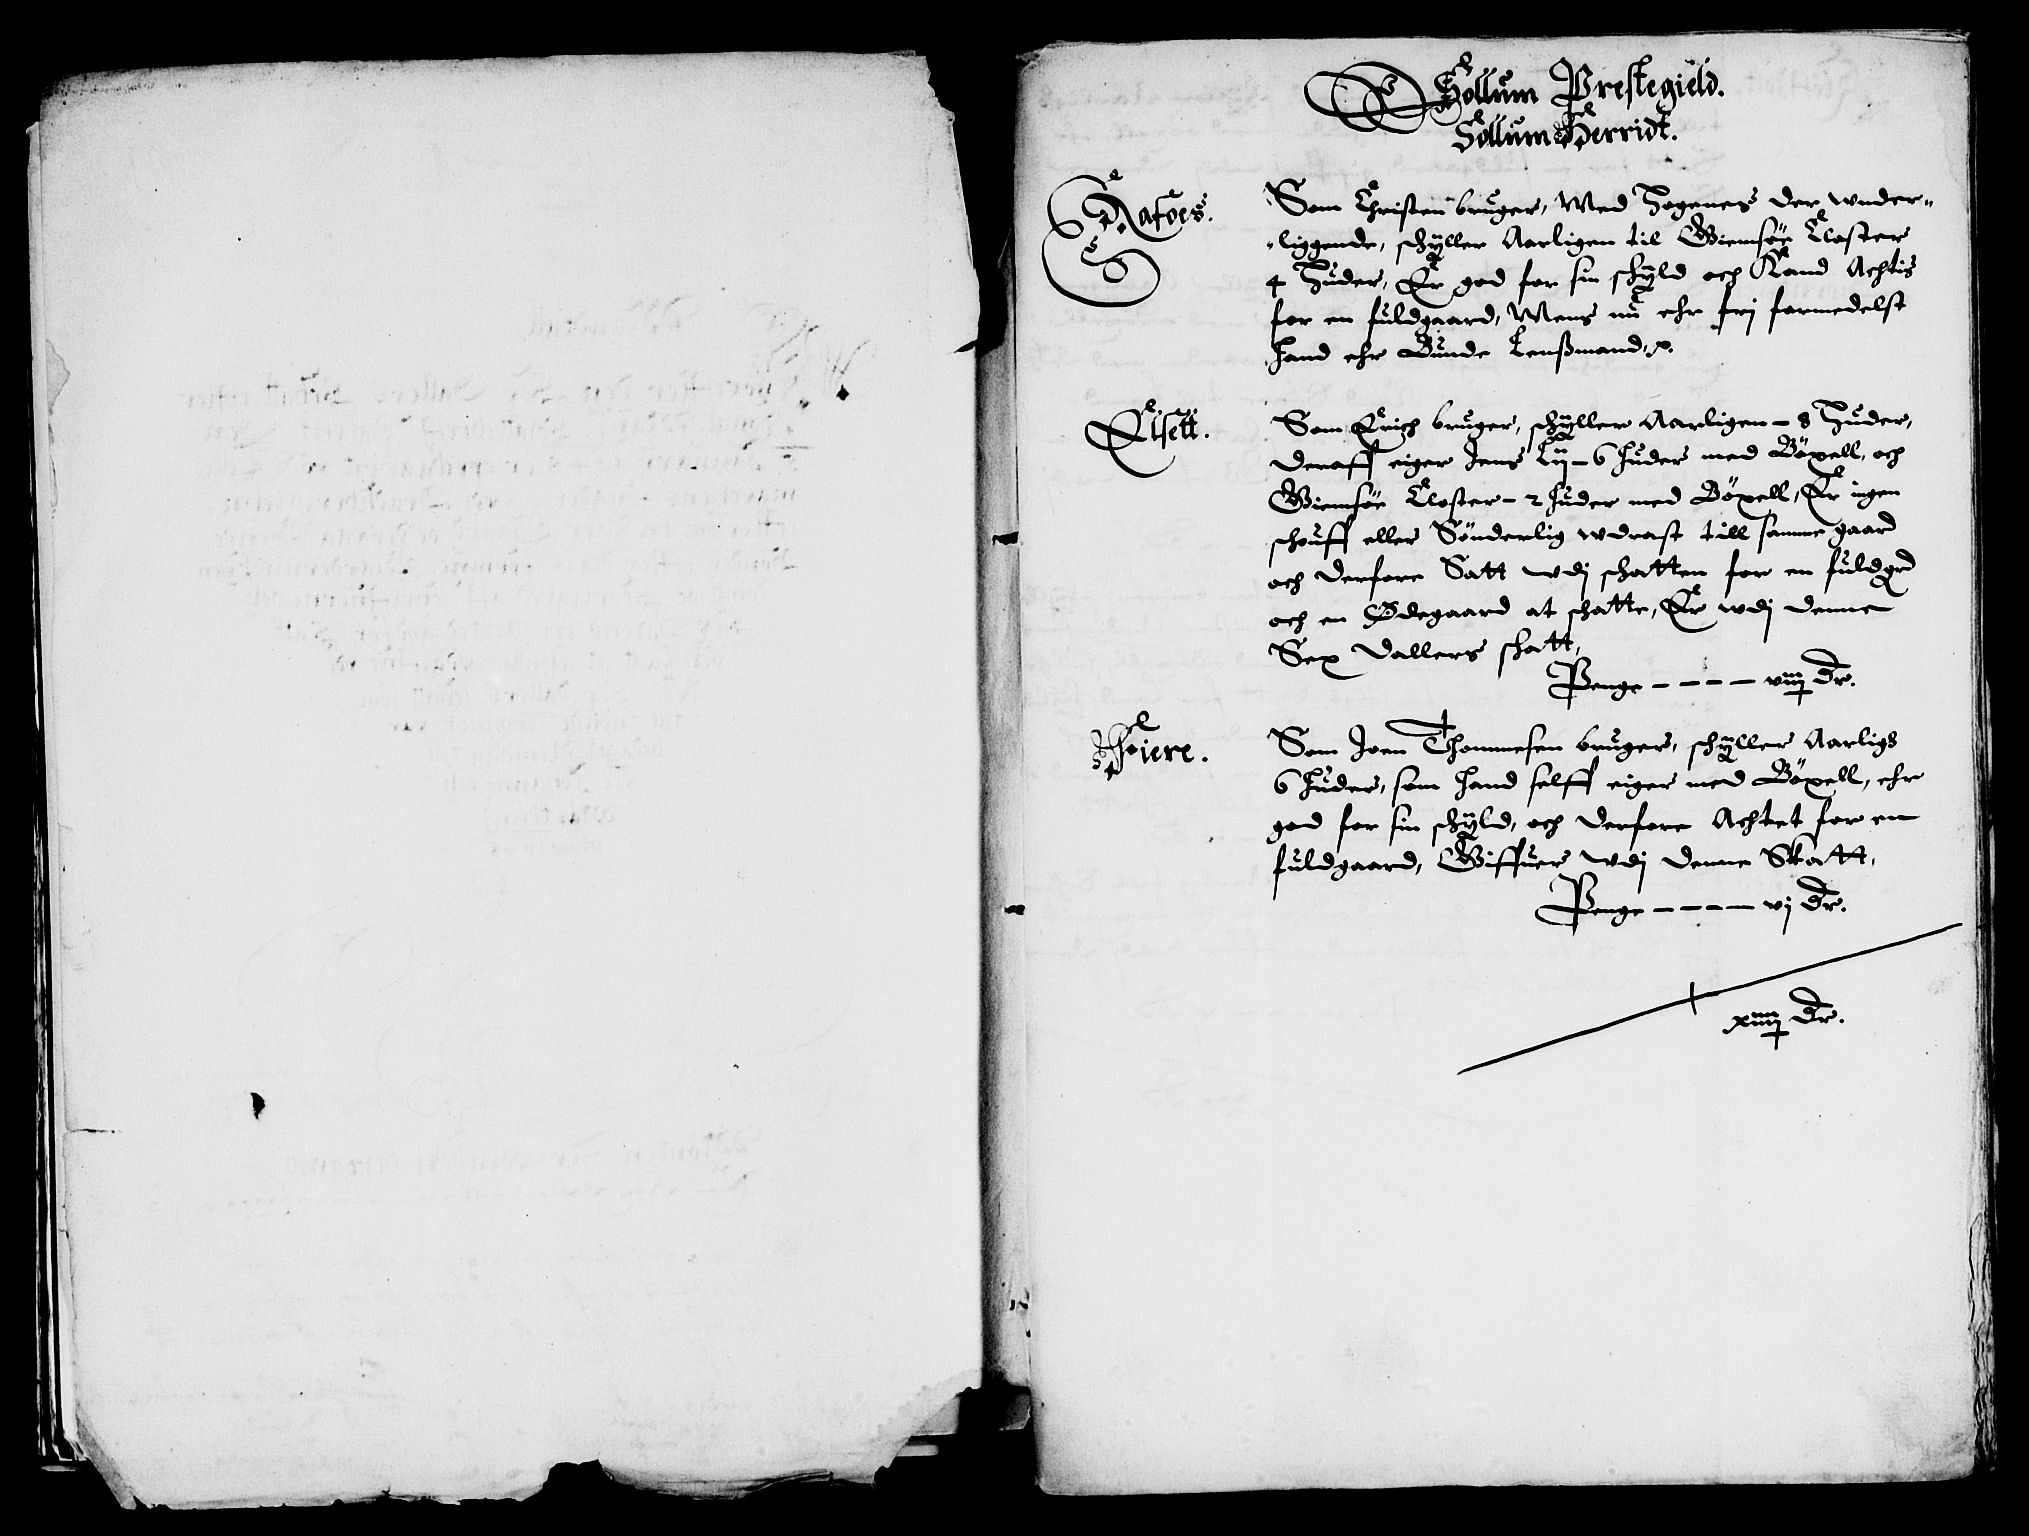 Sollum Prestegield.
Sollum Herridt.
Rafoes.
Som Christen bruger, Med Hogenes der wnder-
liggende, schyller Aarligen til Giemsöe Closter
4 Huder, Er god for sin schyld och Kand Achtis
for en fuldgaard, Mens nu ehr frj formedelst
hand ehr Bunde Lenßmand,
Elsett.
Som Erich bruger, schyller Aarligen - 8 Huder,
deraff eiger Jens Lij - 6 huder med Böxell, och
Giemsöe Closter - 2 huder med Böxell, Er ingen
schouff eller Sönderlig wdrast till samme gaard
och derfore Satt wdj schatten for en fuldgrd
och en Ødegaard at schatte, Er wdj denne
Sex dallers schatt,
Penge - - - - viiij Dr.
Fiere.
Som Joen Thommesen bruger, schyller Aarligs
6 huder, som hand selff eiger med Böxell, ehr
god for sin schyld, och derfore Achtet for en
fuldgaard, Giffuer wdj denne Skatt,
Penge - - - - vj Dr.
xiiiij Dr.